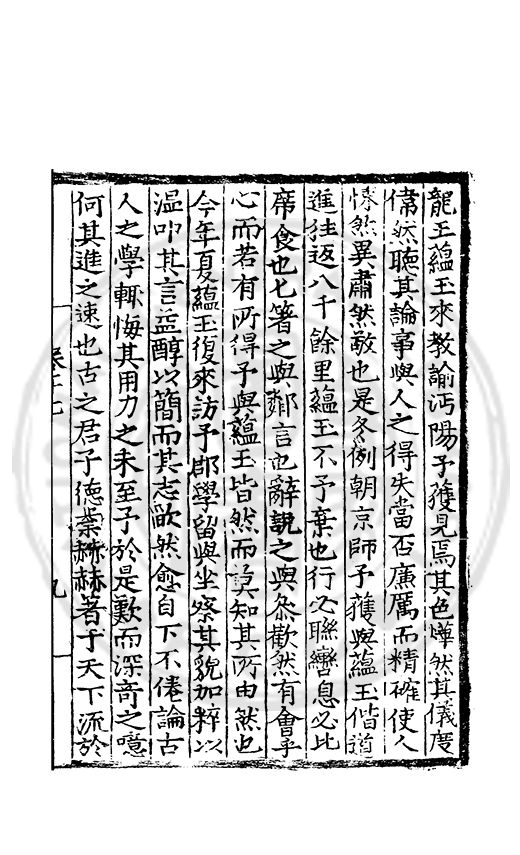 龍王蘊玉來教諭沔陽予獲見焉其色曄然其儀度
偉然聽其論事與人之得失當否廉厲而精確使人
悚然異肅然敬也是冬例朝京師予獲與蘊玉偕道
進往返八千餘里蘊玉不予棄也行必聯轡息必比
席食也匕箸之與鄰言也辭説之與叅歡然有會乎
心而若有所得予與蘊玉皆然而莫知其所由然也
今年夏蘊玉復來訪予郡學留與坐察其貌加粹以
温叩其言益醇以簡而其志歉然愈自下不倦論古
人之學輙悔其用力之未至予於是歎而深奇之噫
何其進之速也古之君子德業赫赫著于天下流於
卷二七
九